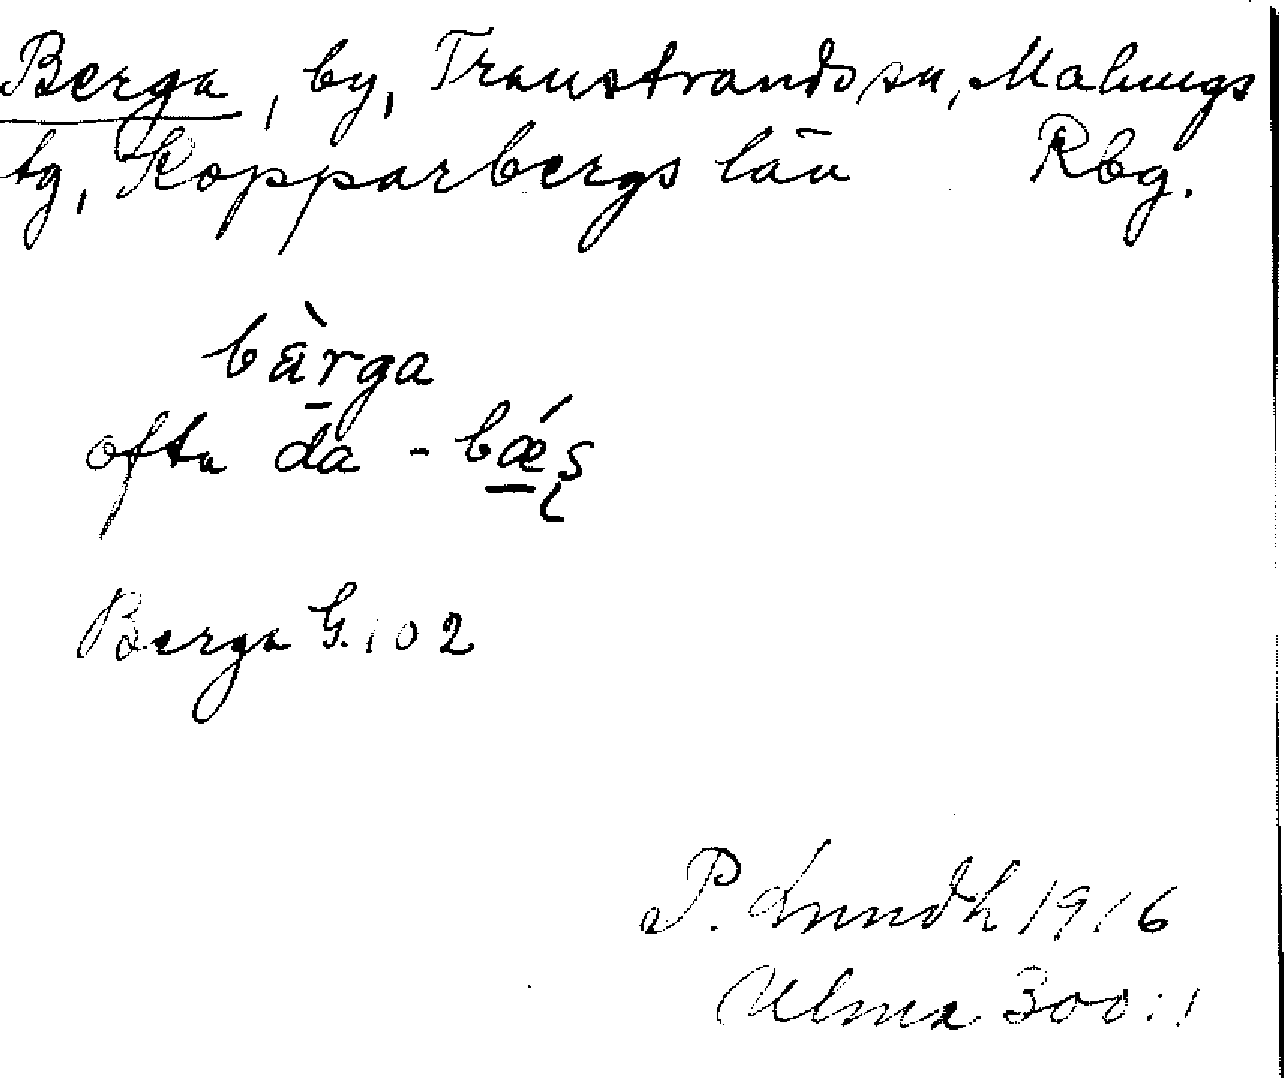 Berga, by, Transtrands sn, Malungs
tg, Kopparbergs län Rbg.
bàrga
ofta da - bǽs
Berga G. 102
P. Lundh 1916
Ulma 300:1